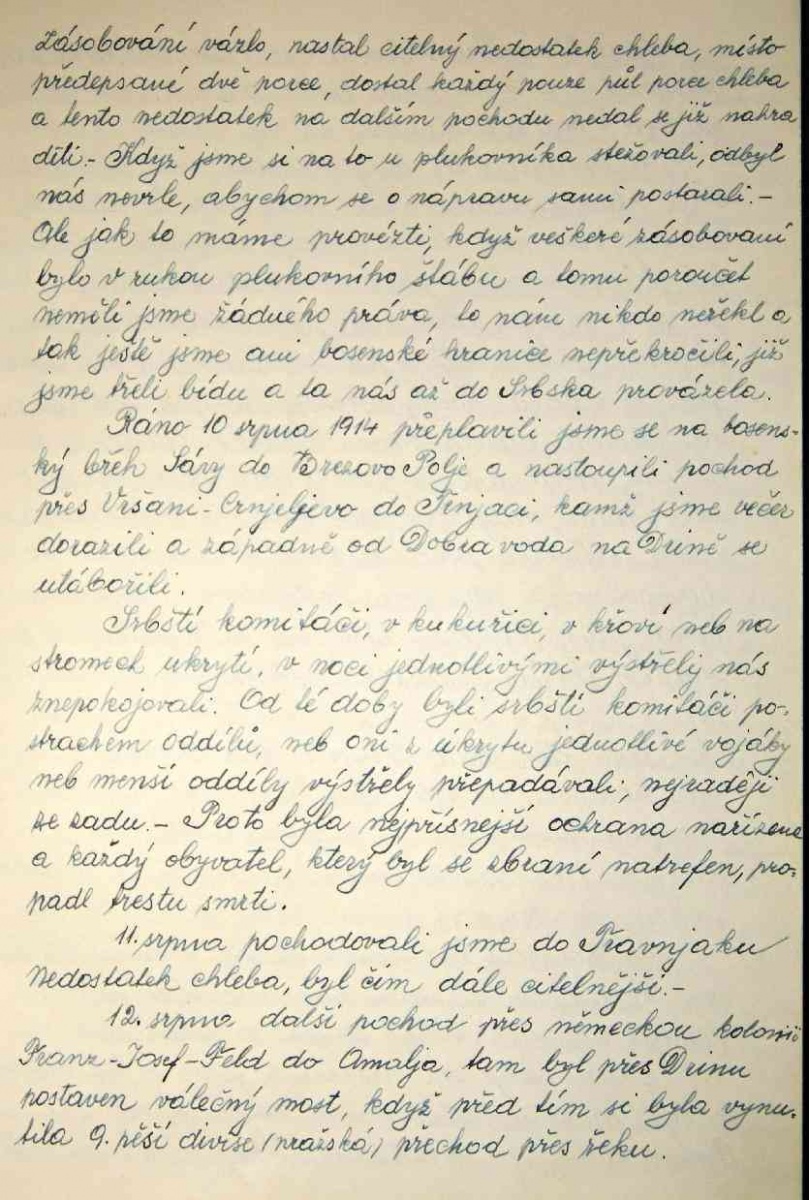 Zásobování vázlo, nastal citelný nedostatek chleba, místo
předepsané dvě porce, dostal každý pouze půl porce chleba
a tento nedostatek na dalším pochodu nedal se již nahra
diti.- Když jsme si na to u plukovníka stežovali, odbyl
nás nevrle, abychom se o nápravu sami postarali.-
Ale jak to máme provézti, když veškeré zásobovaní
bylo v rukou plukovního štábu a tomu poroučet
neměli jsme žádného práva, to nám nikdo neřekl a
tak ještě jsme ani bosenské hranice nepřekročili, již
jsme třeli bídu a ta nás až do Srbska provázela.
Ráno 10 srpna 1914 přeplavili jsme se na bosens-
ký břeh Sávy do Brezovo Polje a nastoupili pochod
přes Vršani-Crnjeljevo do Trnjaci, kamž jsme večer
dorazili a západně od Dobra voda na Drině se
utábořili.
Srbští komitáči, v kukuřici, v křoví neb na
stromech ukrytí, v noci jednotlivými výstřely nás
znepokojovali. Od té doby byli srbští komitáči po-
strachem oddílů, neb oni z úkrytu jednotlivé vojáky
neb menší oddíly výstřely přepadávali, nejraději
ze zadu.- Proto byla nejpřísnejší ochrana nařízena
a každý obyvatel, který byl se zbraní natrefen, pro-
padl trestu smrti.
11. srpna pochodovali jsme do Travnjaku
Nedostatek chleba, byl čím dále citelnější.-
12. srpna další pochod přes německou kolonii
Franz-Josef-Feld do Amalja, tam byl přes Drinu
postaven válečný most, když před tím si byla vynu-
tila 9. pěší divise (pražská) přechod přes řeku.